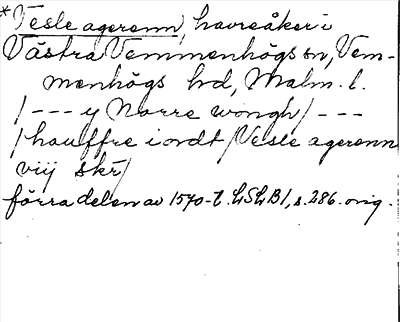 *Vesle agerenn, havreåker i
Västra Vemmenhögs sn, Vem-
menhögs hd, Malm. l.
/--- y Norre wongh/---
/hauffre i ordt/Vesle agerenn
viij skr/
förra delen av 1570-t. LSLB1, s. 286. orig.